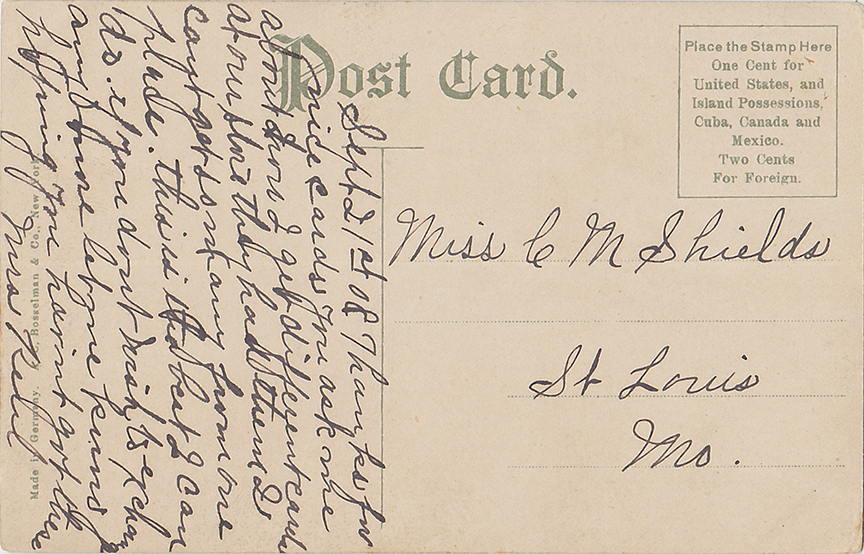 Post Card.
Place the Stamp Here
One Cent for
United States, and
Island Possessions,
Cuba, Canada and
Mexico.
Two Cents
For Foreign.
Sept 21st 08 Thanks for
nice cards you ask me
about how I get different cards
at our store they had them I
cant get so many from one
place. this is the best I can
do. if you dont wish to exchan
any more let me know
hoping you havint got these
Mrs
Miss C M Shields
St Louis
Mo.
Made in Germany. Bosselman & Co., New York